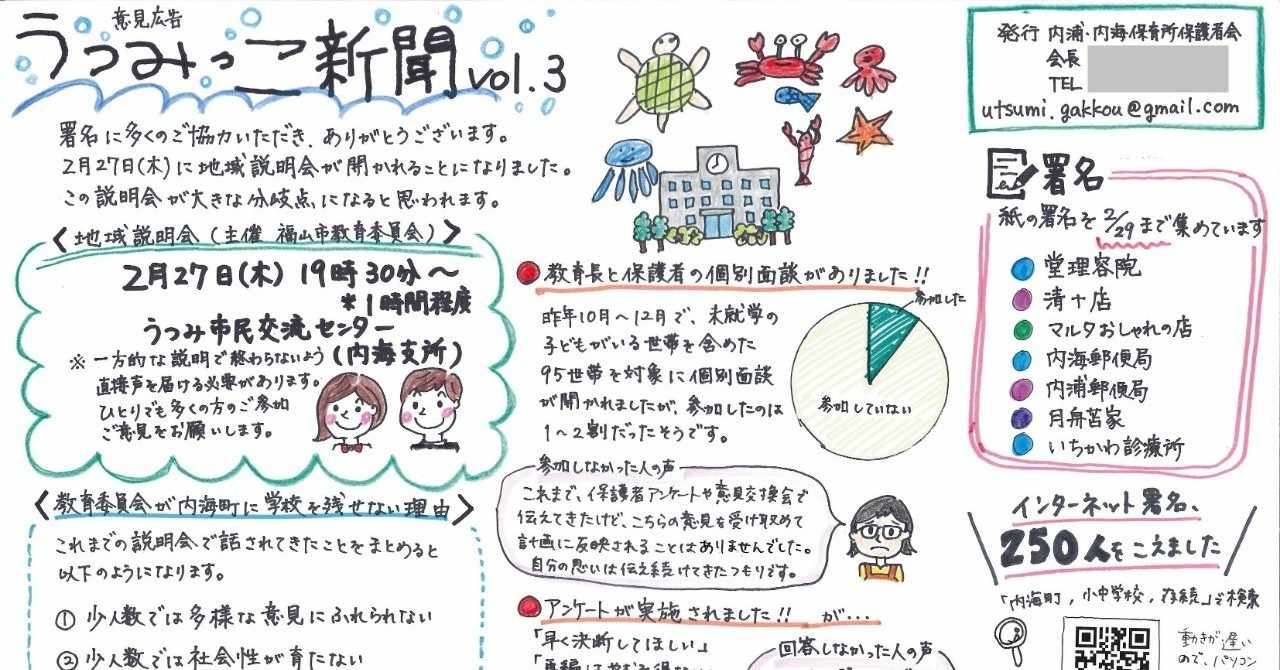 意見広告
うつみっこ新聞 vol.3
署名に多くのご協力いただき、ありがとうございます。
2月27日(木)に地域説明会が開かれることになりました。
この説明会が大きな分岐点になると思われます。
<地域説明会(主催 福山市教育委員会)>
2月27日(木) 19時30分〜
*1時間程度
うつみ市民交流センター
(内海支所)
※一方的な説明で終わらないよう
直接声を届ける必要があります。
ひとりでも多くの方のご参加
ご意見をお願いします。
<教育委員会が内海町に学校を残せない理由>
これまでの説明会で話されてきたことをまとめると
以下のようになります。
① 少人数では多様な意見にふれられない
② 少人数では社会性が育たない
教育長と保護者の個別面談がありました!!
昨年10月〜12月で、未就学の
子どもがいる世帯を含めた
95世帯を対象に個別面談
が開かれましたが、参加したのは
1〜2割だったそうです。
参加した
参加していない
参加しなかった人の声
これまで、保護者アンケートや意見交換会で
伝えてきたけど、こちらの意見を受け取めて
計画に反映されることはありませんでした。
自分の思いは伝え続けてきたつもりです。
アンケートが実施されました!! が…
「早く決断してほしい」
回答しなかった人の声
発行 内浦・内海保育所保護者会
会長
TEL
utsumi.gakkou@gmail.com
署名
紙の署名を2/29まで集めています
堂理容院
清十店
マルタおしゃれの店
内海郵便局
内浦郵便局
月舟苫家
いちかわ診療所
インターネット署名、
250人をこえました
「内海町, 小中学校, 存続」で検索
動きが遅い
ので、パソコン